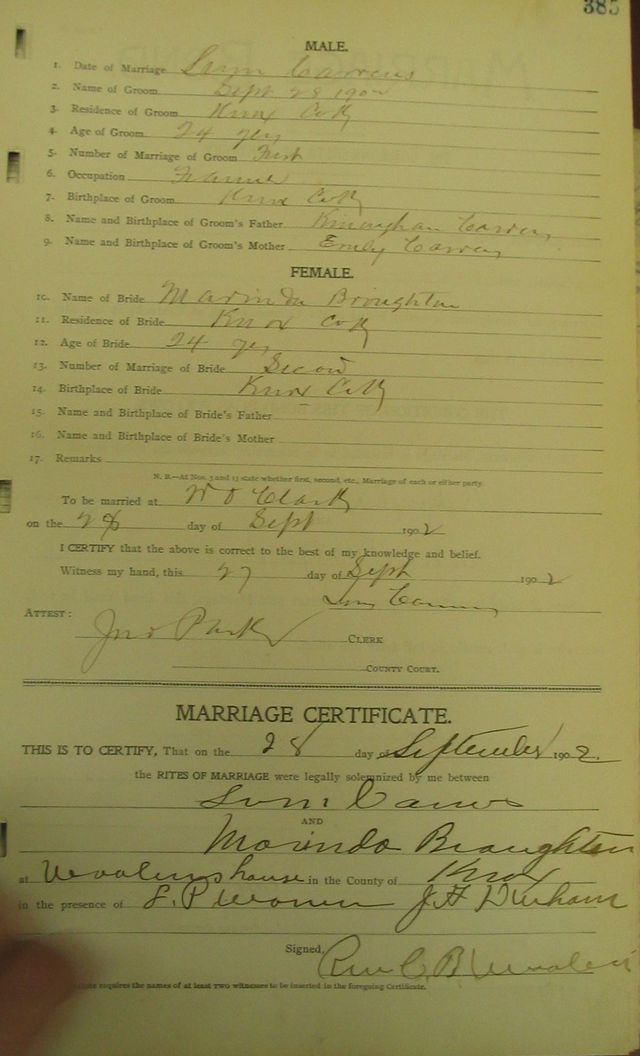 385
MALE.
1. Date of Marriage
2. Name of Groom Sept 28 1902
3. Residence of Groom Knox Co Ky
4. Age of Groom 24 yrs
5. Number of Marriage of Groom First
6. Occupation Farmer
7. Birthplace of Groom Knox Co Ky
8. Name and Birthplace of Groom's Father
9. Name and Birthplace of Groom's Mother Emily
FEMALE.
10. Name of Bride Marinda Broughton
11. Residence of Bride Knox Co Ky
12. Age of Bride 24 yrs
13. Number of Marriage of Bride Second
14. Birthplace of Bride Knox Co Ky
15. Name and Birthplace of Bride's Father
16. Name and Birthplace of Bride's Mother
17. Remarks
N. B.—At Nos. 5 and 13 state whether first, second, etc., Marriage of each or either party.
To be married at
on the 28 day of Sept 1902
I CERTIFY that the above is correct to the best of my knowledge and belief.
Witness my hand, this 27 day of Sept 1902
ATTEST:
CLERK
COUNTY COURT.
MARRIAGE CERTIFICATE.
THIS IS TO CERTIFY, That on the 28 day of September 1902.
the RITES OF MARRIAGE were legally solemnized by me between
AND
Morinda Broughton
at house in the County of Knox
in the presence of J. H Durham
Signed,
requires the names of at least TWO witnesses to be inserted in the foregoing Certificate.